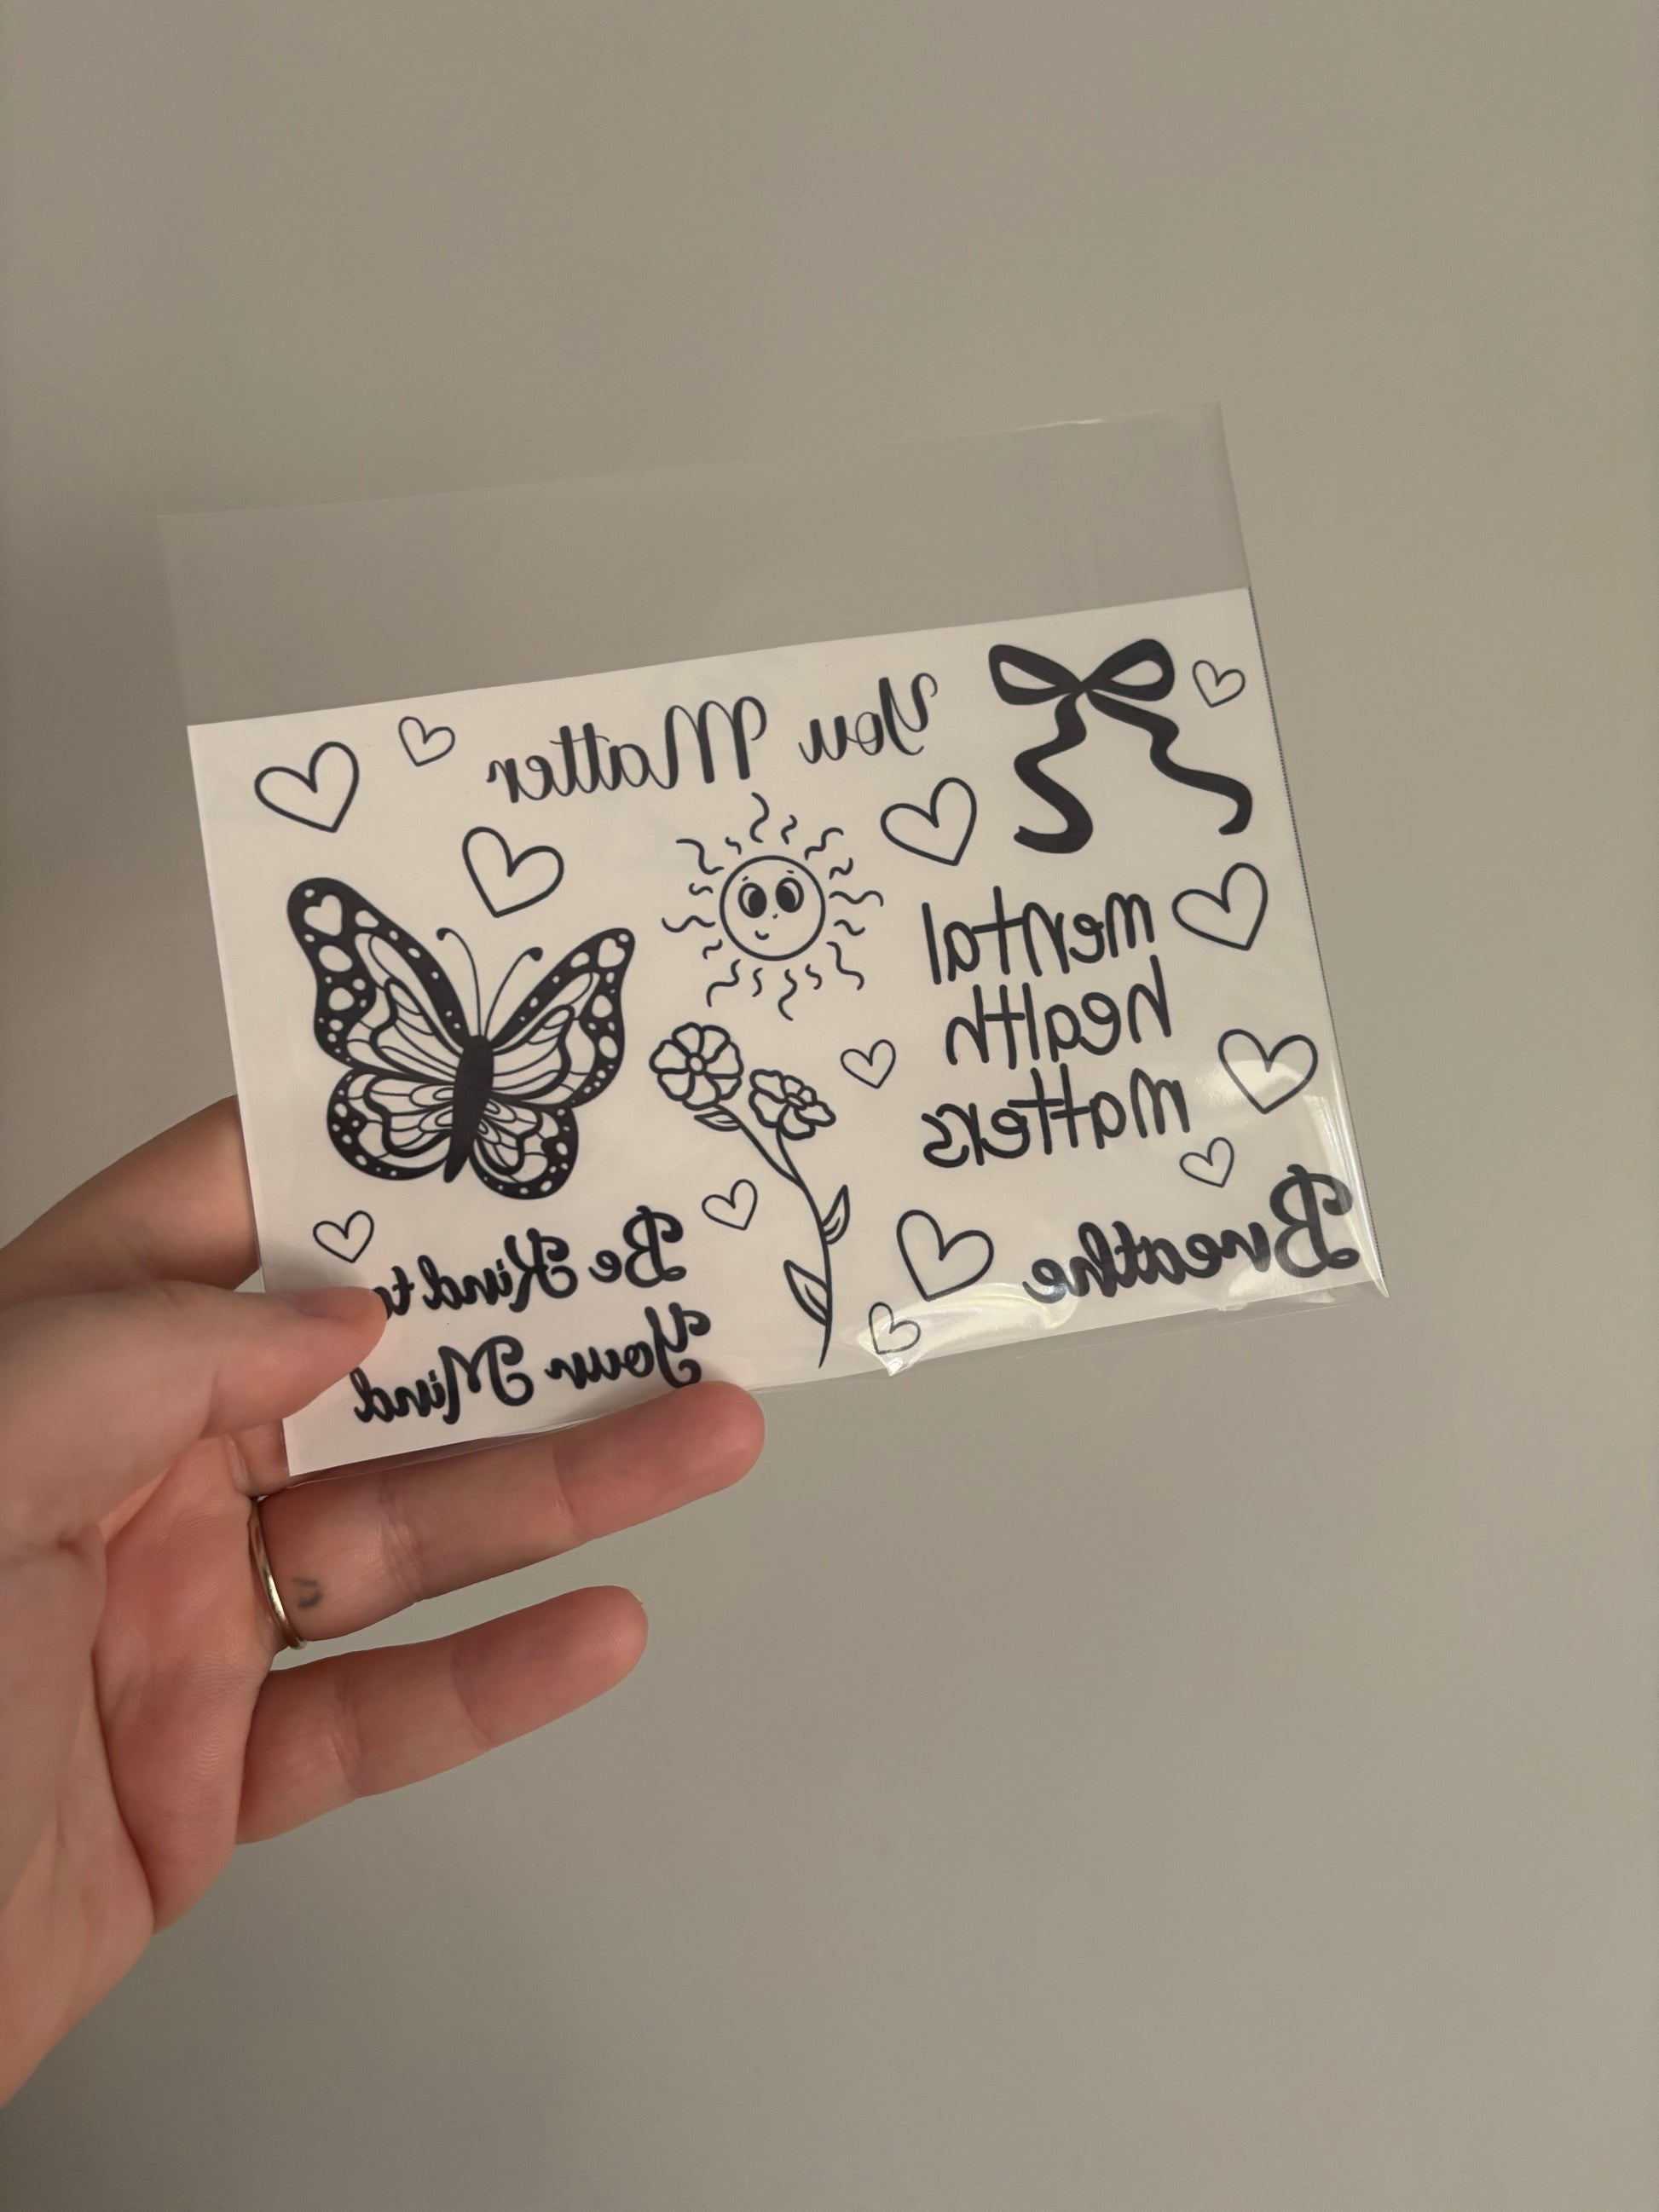 You Matter
mental
health
matters
Breathe
Be Kind to
Your Mind